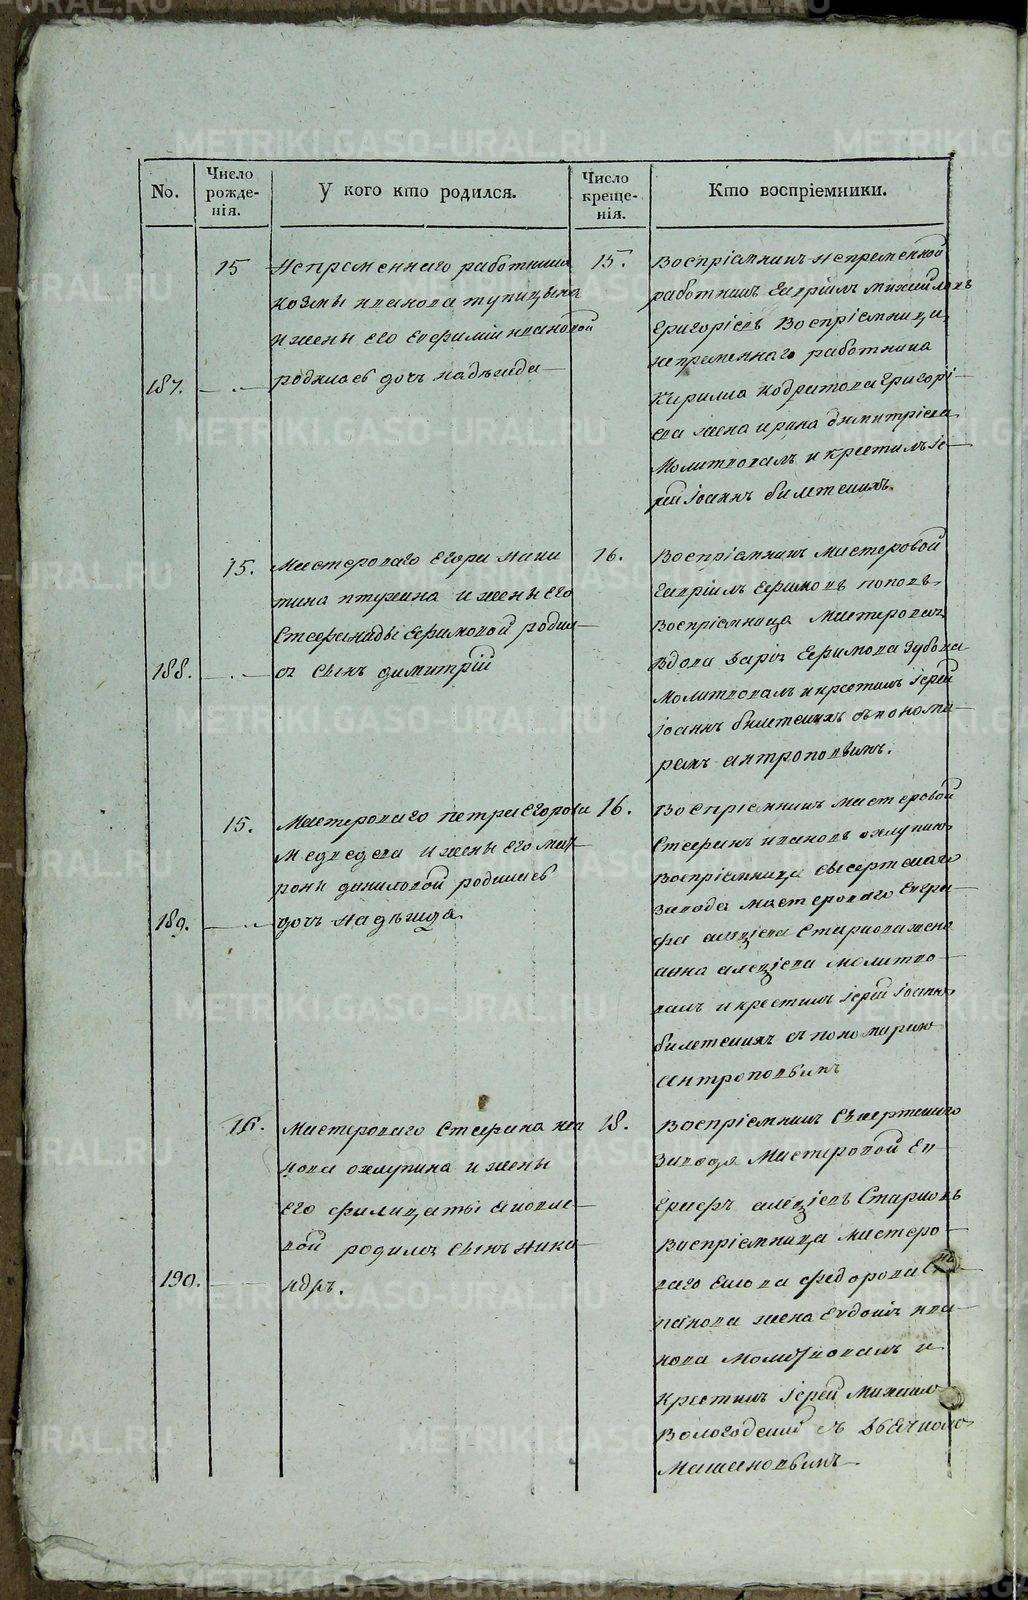 No.
Число рожде-нія.
У кого кто родился.
Число креще-нія.
Кто воспріемники.
187.
15
Непременнаго работника
Козмы Иванова тупицына
и жены его Евфиміи Ивановой
родилась дочь надѣжда
15.
Воспріемникъ непременной
работникъ Гаврiилъ Михайловъ
Григоріевъ Воспріемница,
непременнаго работника
Кирилла Кодратова Григорі-
ева жена ирина димитріева
Молитвовалъ и крестилъ іе-
рей Іоаннъ билетскихъ.
188.
15.
Мастероваго Егора Ники
тина птухина и жены его
Стефаниды Ефимовой родил-
ся сынъ димитрій
16.
Воспріемникъ мастеровой
Гаврiилъ Ефимовъ поповъ
Воспріемница Мастеровая
вдова Дарія Ефимова Зубова
Молитвовалъ и крестилъ іерей
Іоаннъ билетскихъ съ понома-
ремъ антроповымъ.
189.
15.
Мастероваго петра Егорова
Медведева и жены его мат-
роны даниловой родилась
дочь надѣжда
16.
Воспріемникъ мастеровой
Стефанъ ивановъ охлупинъ
Воспріемница сысертскаго
завода мастероваго Евгра-
фа алезіева Старкова жена
анна алезіева молитво-
валъ и крестилъ іерей Іоаннъ
билетскихъ съ пономарию
антроповымъ
190.
16.
Мастероваго Стефана ива
нова охлупина и жены
его филицаты яковле-
вой родился сынъ ника-
ндръ.
18.
Воспріемникъ Сысертскаго
завода Мастеровой Ев-
графъ алезіевъ Старковъ
Воспріемница мастеро-
ваго федорова
панова жена Евдокія ива-
нова Молитвовалъ и
Крестилъ іерей Михаилъ
Вологодский съ Дьячкомъ
Машановымъ
METRIKI.GASO-URAL.RU